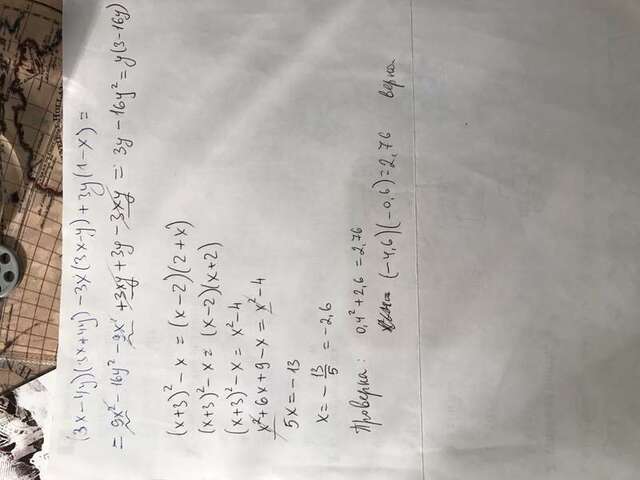 (3x-4y)(3x+4y)-3x(3x-y)+3y(1-x)=
=9x²-16y²-9x²+3xy+3y-3xy=3y-16y²=y(3-16y)
(x+3)²-x=(x-2)(2+x)
(x+3)²-x=(x-2)(x+2)
(x+3)²-x=x²-4
x²+6x+9-x=x²-4
5x=-13
x=-13/5=-2,6
Проверка: 0,4²+2,6=2,76
(-4,6)(-0,6)=2,76 верно